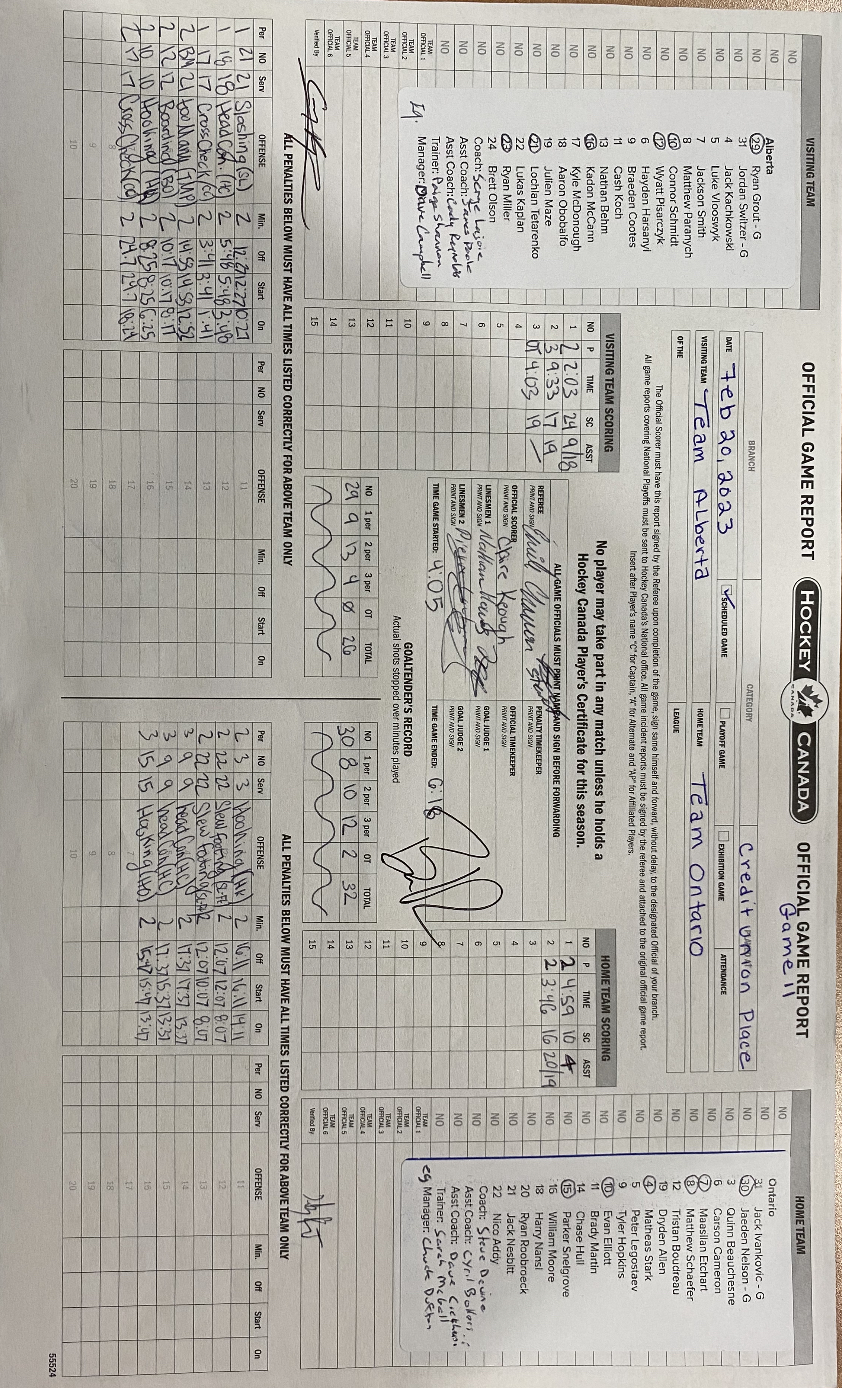 OFFICIAL GAME REPORT HOCKEY CANADA OFFICIAL GAME REPORT
Game 11
VISITING TEAM
NO
NO
Alberta
29 Ryan Grout - G
31 Jordan Switzer - G
4 Jack Kachkowski
5 Luke Vlooswyk
7 Jackson Smith
8 Matthew Paranych
10 Connor Schmidt
12 Wyatt Pisarczyk
6 Hayden Harsanyi
9 Braeden Cootes
11 Cash Koch
13 Nathan Behm
16 Kadon McCann
17 Kyle McDonough
18 Aaron Obobaifo
19 Julien Maze
21 Lochlan Tetarenko
22 Lukas Kaplan
23 Ryan Miller
24 Brett Olson
Coach: Serge Lajoie
Asst Coach: James Poole
Asst Coach: Cody Reynolds
Trainer: Paige Sherman
Manager: Dave Campbell
TEAM OFFICIAL 1
TEAM OFFICIAL 2
TEAM OFFICIAL 3
TEAM OFFICIAL 4
TEAM OFFICIAL 5
TEAM OFFICIAL 6
Verified By
BRANCH CATEGORY Credit Union Place
DATE Feb 20, 2023 ✓ SCHEDULED GAME PLAYOFF GAME EXHIBITION GAME ATTENDANCE
VISITING TEAM Team Alberta HOME TEAM Team Ontario
OF THE LEAGUE
The Official Scorer must have this report signed by the Referee upon completion of the game, sign same himself and forward, without delay, to the designated Official of your branch.
All game reports covering National Playoffs must be sent to Hockey Canada's National office. All game incident reports must be signed by the referee and attached to the original official game report.
Insert after Player's name "C" for Captain, "A" for Alternate and "AP" for Affiliated Players.
VISITING TEAM SCORING
NO P TIME SC ASST
1 2 2:03 24 9/18
2 3 9:33 17 19
3 OT 4:03 19 –
4
5
6
7
8
9
10
11
12
13
14
15
No player may take part in any match unless he holds a
Hockey Canada Player's Certificate for this season.
ALL GAME OFFICIALS MUST PRINT NAME AND SIGN BEFORE FORWARDING
REFEREE PRINT AND SIGN PENALTY TIMEKEEPER PRINT AND SIGN
OFFICIAL SCORER PRINT AND SIGN Claire Keough OFFICIAL TIMEKEEPER PRINT AND SIGN
LINESMEN 1 PRINT AND SIGN Nathan GOAL JUDGE 1 PRINT AND SIGN
LINESMEN 2 PRINT AND SIGN GOAL JUDGE 2 PRINT AND SIGN
TIME GAME STARTED: 4:05 TIME GAME ENDED: 6:18
GOALTENDER'S RECORD
Actual shots stopped over minutes played
NO 1 per 2 per 3 per OT TOTAL
29 9 13 4 0 26
NO 1 per 2 per 3 per OT TOTAL
30 8 10 12 2 32
HOME TEAM SCORING
NO P TIME SC ASST
1 2 4:59 10 4
2 2 3:46 16 20/19
3
4
5
6
7
8
9
10
11
12
13
14
15
HOME TEAM
NO
NO
Ontario
31 Jack Ivankovic - G
30 Jaeden Nelson - G
3 Quinn Beauchesne
6 Carson Cameron
7 Maasilan Etchart
8 Matthew Schaefer
12 Tristan Boudreau
19 Dryden Allen
4 Matheas Stark
5 Peter Legostaev
9 Tyler Hopkins
10 Evan Elliott
11 Brady Martin
14 Chase Hull
15 Parker Snelgrove
16 William Moore
18 Harry Nansi
20 Ryan Roobroeck
21 Jack Nesbitt
22 Nico Addy
Coach: Steve Devine
Asst Coach: Cyril Bollers
Asst Coach: Dave
Trainer: Sarah
Manager: Chuck
TEAM OFFICIAL 1
TEAM OFFICIAL 2
TEAM OFFICIAL 3
TEAM OFFICIAL 4
TEAM OFFICIAL 5
TEAM OFFICIAL 6
Verified By
ALL PENALTIES BELOW MUST HAVE ALL TIMES LISTED CORRECTLY FOR ABOVE TEAM ONLY
Per NO Serv OFFENSE Min. Off Start On
1 21 21 Slashing (SL) 2 12:27 12:27 10:27
1 18 18 Head Con. (HC) 2 5:48 5:48 3:48
1 17 17 Cross Check (CC) 2 3:41 3:41 1:41
2 BM 21 Too Many (TMP) 2 14:58 14:58 12:52
2 12 12 Boarding (BO) 2 10:17 10:17 8:17
2 10 10 Hooking (HK) 2 8:25 8:25 6:25
2 17 17 Cross Check (CC) 2
Per NO Serv OFFENSE Min. Off Start On
11
12
13
14
15
16
17
18
19
20
ALL PENALTIES BELOW MUST HAVE ALL TIMES LISTED CORRECTLY FOR ABOVE TEAM ONLY
Per NO Serv OFFENSE Min. Off Start On
2 3 3 Hooking (HK) 2 16:11 16:11 14:11
2 22 22 Slew Footing 2 12:07 12:07 8:07
2 22 22 Slew Footing 2 12:07 10:07 8:07
3 9 9 Head Con (HC) 2 17:37 17:37 13:37
3 9 9 Head Con (HC) 2 17:37 15:37 13:37
3 15 15 Hooking 2 15:47 15:47 13:47
Per NO Serv OFFENSE Min. Off Start On
11
12
13
14
15
16
17
18
19
20
55524